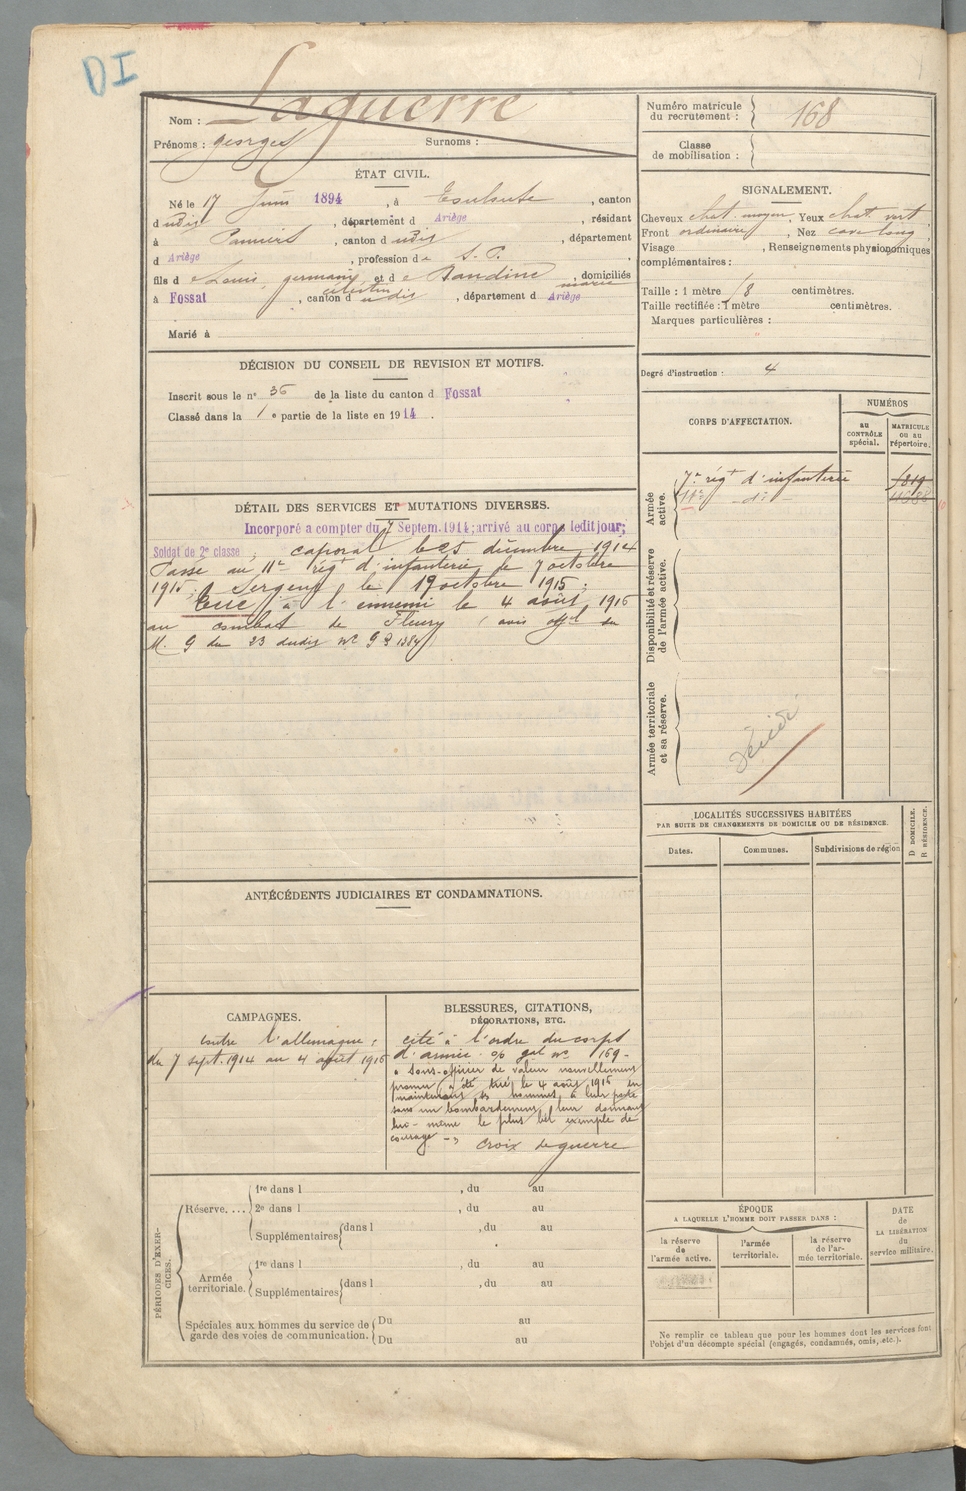 DI
Nom : Laguerre
Prénoms : Georges Surnoms :
Numéro matricule
du recrutement : 168
Classe
de mobilisation :
ÉTAT CIVIL.
Né le 17 Juin 1894, à , canton
d udit, département d Ariège, résidant
à Pamiers, canton d udit, département
d Ariège, profession de S. P.
fils de Louis, germain célestin et de Bandine marie, domiciliés
à Fossat, canton d udit, département d Ariège
Marié à
SIGNALEMENT.
Cheveux chat. moyen, Yeux chat. vert
Front ordinaire, Nez cave long,
Visage , Renseignements physionomiques
complémentaires :
Taille : 1 mètre 78 centimètres.
Taille rectifiée : 1 mètre centimètres.
Marques particulières :
Degré d'instruction : 4
DÉCISION DU CONSEIL DE REVISION ET MOTIFS.
Inscrit sous le n° 36 de la liste du canton d Fossat
Classé dans la 1e partie de la liste en 1914.
DÉTAIL DES SERVICES ET MUTATIONS DIVERSES.
Incorporé a compter du 7 Septem. 1914; arrivé au corps ledit jour;
Soldat de 2e classe ; caporal le 25 décembre 1914
Passé au 11e régt d'infanterie le 7 octobre
1915, Sergent le 19 octobre 1915;
Tué à l'ennemi le 4 août 1916
au combat de Fleury (avis offel du
M. G du 23 dudit
CORPS D'AFFECTATION.
NUMÉROS
AU CONTRÔLE spécial.
MATRICULE OU AU répertoire.
Armée active.
7e régt d'infanterie 1819
11e — di —
Disponibilité et réserve de l'armée active.
Armée territoriale et sa réserve.
LOCALITÉS SUCCESSIVES HABITÉES
PAR SUITE DE CHANGEMENTS DE DOMICILE OU DE RÉSIDENCE.
Dates. Communes. Subdivisions de région D DOMICILE. R RÉSIDENCE.
ANTÉCÉDENTS JUDICIAIRES ET CONDAMNATIONS.
CAMPAGNES.
Contre l'allemagne :
du 7 sept. 1914 au 4 août 1916
BLESSURES, CITATIONS,
DÉCORATIONS, ETC.
cité à l'ordre du corps
d'armée. o/ gal n° 169 -
« Sous-officier de valeur nouvellement
promu a été tué le 4 août 1916 en
maintenant ses hommes à leur poste
sous un bombardement, leur donnant
lui-même le plus bel exemple de
courage » Croix de guerre
PÉRIODES D'EXERCICES.
Réserve....
1re dans l , du au
2e dans l , du au
Supplémentaires dans l , du au
Armée territoriale.
1re dans l , du au
Supplémentaires dans l , du au
Spéciales aux hommes du service de
garde des voies de communication.
Du au
Du au
ÉPOQUE
A LAQUELLE L'HOMME DOIT PASSER DANS :
la réserve de l'armée active.
l'armée territoriale.
la réserve de l'armée territoriale.
DATE de LA LIBÉRATION du service militaire.
Ne remplir ce tableau que pour les hommes dont les services font
l'objet d'un décompte spécial (engagés, condamnés, omis, etc.).